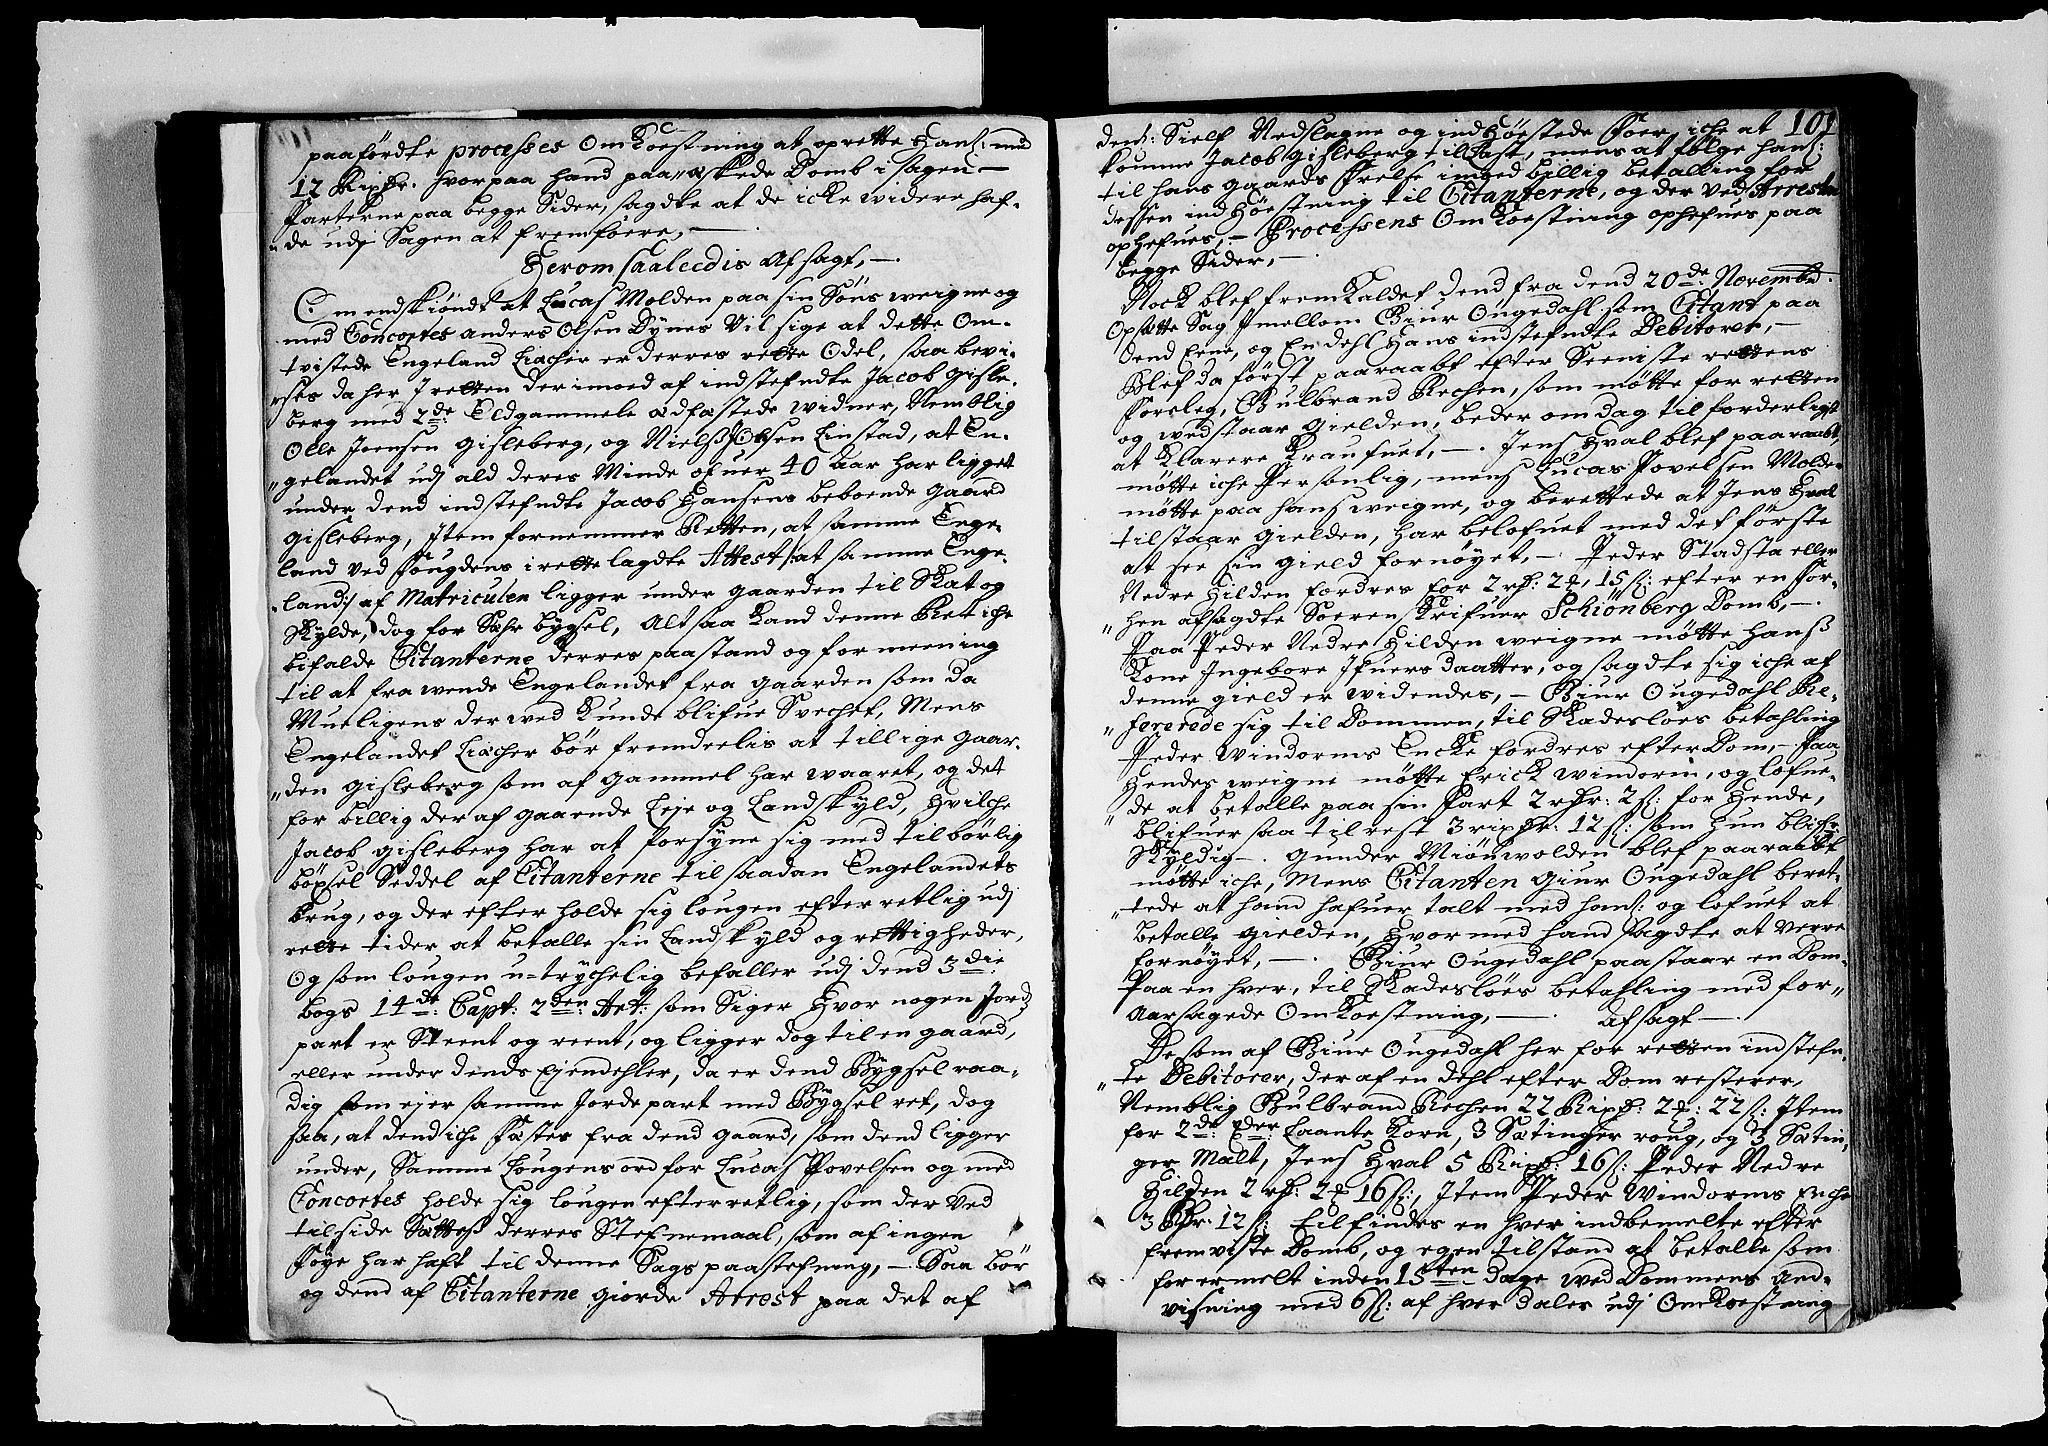 paaførdte processes Omkostning at oprette Hans: med
12 Rixdr. hvorpaa hand paa æskede Domb i sagen —
Parterne paa begge Sider, sagdte at de icke widere haf-
de udj Sagen at fremføere, —
Herom saaleedis Afsagt, —
Om endskiöndt at Lucas Molden paa sin Söns weigne og
med Concortes anders Olsen Dynes Vil sige at dette Om-
tvistede Engeland Liacher er derres rette Odel, saa bevi-
ses da her J retten derimoed af indstefndte Jacob gisle-
berg med 2de: Eldgammele ædfæstede widner, Nemblig
Olle Joensen gisleberg, og Nielss Olsen Linstad, at En-
gelandet udj ald deres Minde ofuer 40 aar har ligget
under dend indstefndte Jacob Hansens beboende gaard
gisleberg, Item fornemmer Retten, at samme Enge-
land ved fougdens i rette lagdte Attest /: at samme Enge-
land :/ af Matriculen ligger under gaarden til Skat og
Skylde, dog for Sæhr bÿgsel, Alt saa kand denne Ret iche
bifalde Citanterne derres paastand og formeening
til at fra wende Engelandet fra gaarden som da
Mueligens der wed kunde blifue Svechet, Mens
Engelandet Liacher bör fremdeelis at tillige gaar-
den gisleberg som af gammel har waaret, og det
for billig der af gaaende Leje og Landskyld, hvilche
Jacob gisleberg har at forsyne sig med tilbörlig
böxsel Seddel af Citanterne til saadan Engelandets
brug, og der efter holde sig lougen efterretlig udj
rette tider at betalle sin Landskyld og rettigheder,
Og som lougen u-trychelig befaller udj dend 3die
bogs 14de: Capt: 2den: Art: som Siger hvor nogen Jord-
part er Steent og reent, og ligger dog til en gaard,
eller under dends Ejendehler, da er dend Bygsel raa-
dig som ejer samme Jorde part med Bÿgsel ret, dog
saa, at dend iche fæstes fra dend gaard, som dend ligger
under, Samme Lougens ord for Lucas Povelsen og med
Concortes holde sig lougen efterretlig, som der ved
tilside Sættes derres Stefnemaal, som af ingen
föye har haft til denne Sags paastefning, — Saa bör
og dend af Citanterne giorde Arrest paa det af
101
dend: Sielf Nedslagne og indhöestede foer, iche at
komme Jacob gisleberg til Last, mens at fölge hans:
til hans gaards frelse imod billig betalling for
dessen indhöestning til Citanterne, og der ved Arresten
ophefues, — Processens Omkoestning ophefues paa
begge Sider, —
Nock blef fremkaldet dend fra dend 20de Novembr:
Opsatte Sag Jmellom Giur Ougedahl som Citant paa
dend Eene, og En dehl Hans indstefndte Debitorer, —
Blef da först paaraabt efter Seeniste rettens
foreleg, Gulbrand Rechen, som mötte for retten
og wedstaar gielden, beder om dag til forderligst
at klarere krafuet, —. Jens Hval blef paaraabt,
mötte iche Personlig, mens Lucas Povelsen Molden
mötte paa hans weigne, og berettede at Jens Hval
tilstaar gielden, har belofuet med det förste
at see sin gield fornöyet, — Peder Stadsta eller
Nedre Hilden fordres for 2 rd: 2 ort, 15 s: efter en for-
hen afsagdte Soeren Skrifuer Schiönberg Domb, —.
Paa Peder Nedre Hilden weigne mötte hans
Kone Ingebore Jfuersdaatter, og sagdte sig iche af
denne gield er widendes, — Giur Ougedahl Re-
fererede sig til Dommen, til Skadeslöes betahling
Peder Windorms Encke fordres efter Dom, — Paa
Hendes weigne mötte Erick Windorm, og lofue-
de at betalle paa sin Part 2 rdr: 2 s: for hende,
blifuer saa til rest 3 rixdr. 12 s: som hun blifr
Skyldig —. gunder Miönwolden blef paaraabt
mötte iche, Mens Citanten Giur Ougedahl beret-
tede at hand hafuer talt med hans: og lofuet at
betalle gielden, hvormed hand sagdte at verre
fornöyet, —. Giur Ougedahl paastaar en Dom-
Paa en hver, til Skadeslöes betahling med for-
Aarsagede Omkoestning, —. afsagt —.
De som af Giur Ougedahl her for retten indstefn-
te Debitorer, der af en dehl efter Dom resterer,
Nemblig Gulbrand Rechen 22 Rixd: 2 ort: 22 s: Item
for 2de: Laante Korn, 3 Sætinger roug, og 3 Sætin-
ger Malt, Jens Hval 5 Rixd: 16 s: Peder Nedre
Hilden 2 rd: 2 ort 16 s:, Item Peder Windorms Enche
3 Rdr. 12 s: tilfindes en hver indbemelte efter
fremviste Domb, og egen tilstand at betalle som
for ermelt inden 15ten dage wed Dommens And-
visning med 6 s: af hver daler udj Omkoestning